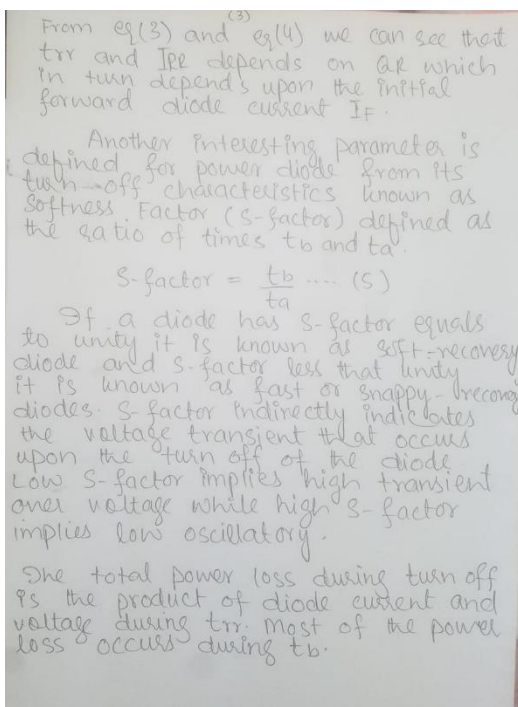 (3)
From eq(3) and eq(4) we can see that
trr and IRR depends on QR which
in turn depends upon the initial
forward diode current IF.
Another interesting parameter is
defined for power diode from its
turn-off characteristics known as
Softness Factor (S-factor) defined as
the ratio of times tb and ta.
S-factor = tb/ta .... (5)
If a diode has S-factor equals
to unity it is known as soft-recovery
diode and S-factor less that unity
it is known as fast or snappy-recovery
diodes. S-factor indirectly indicates
the voltage transient that occurs
upon the turn off of the diode.
Low S-factor implies high transient
over voltage while high S-factor
implies low oscillatory.
The total power loss during turn off
is the product of diode current and
voltage during trr. Most of the power
loss occurs during tb.